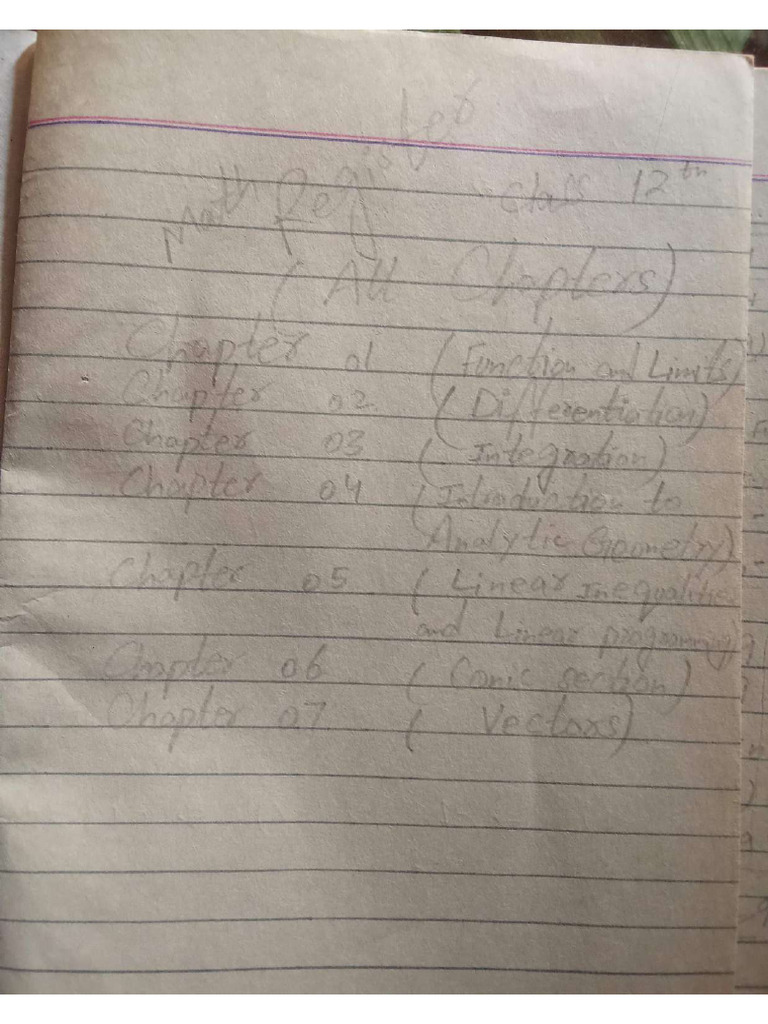 Math Register
Class 12th
(All Chapters)
Chapter 01 (Function and Limits)
Chapter 02 (Differentiation)
Chapter 03 (Integration)
Chapter 04 (Introduction to
Analytic Geometry)
Chapter 05 (Linear Inequalities
and Linear programming)
Chapter 06 (Conic section)
Chapter 07 (Vectors)